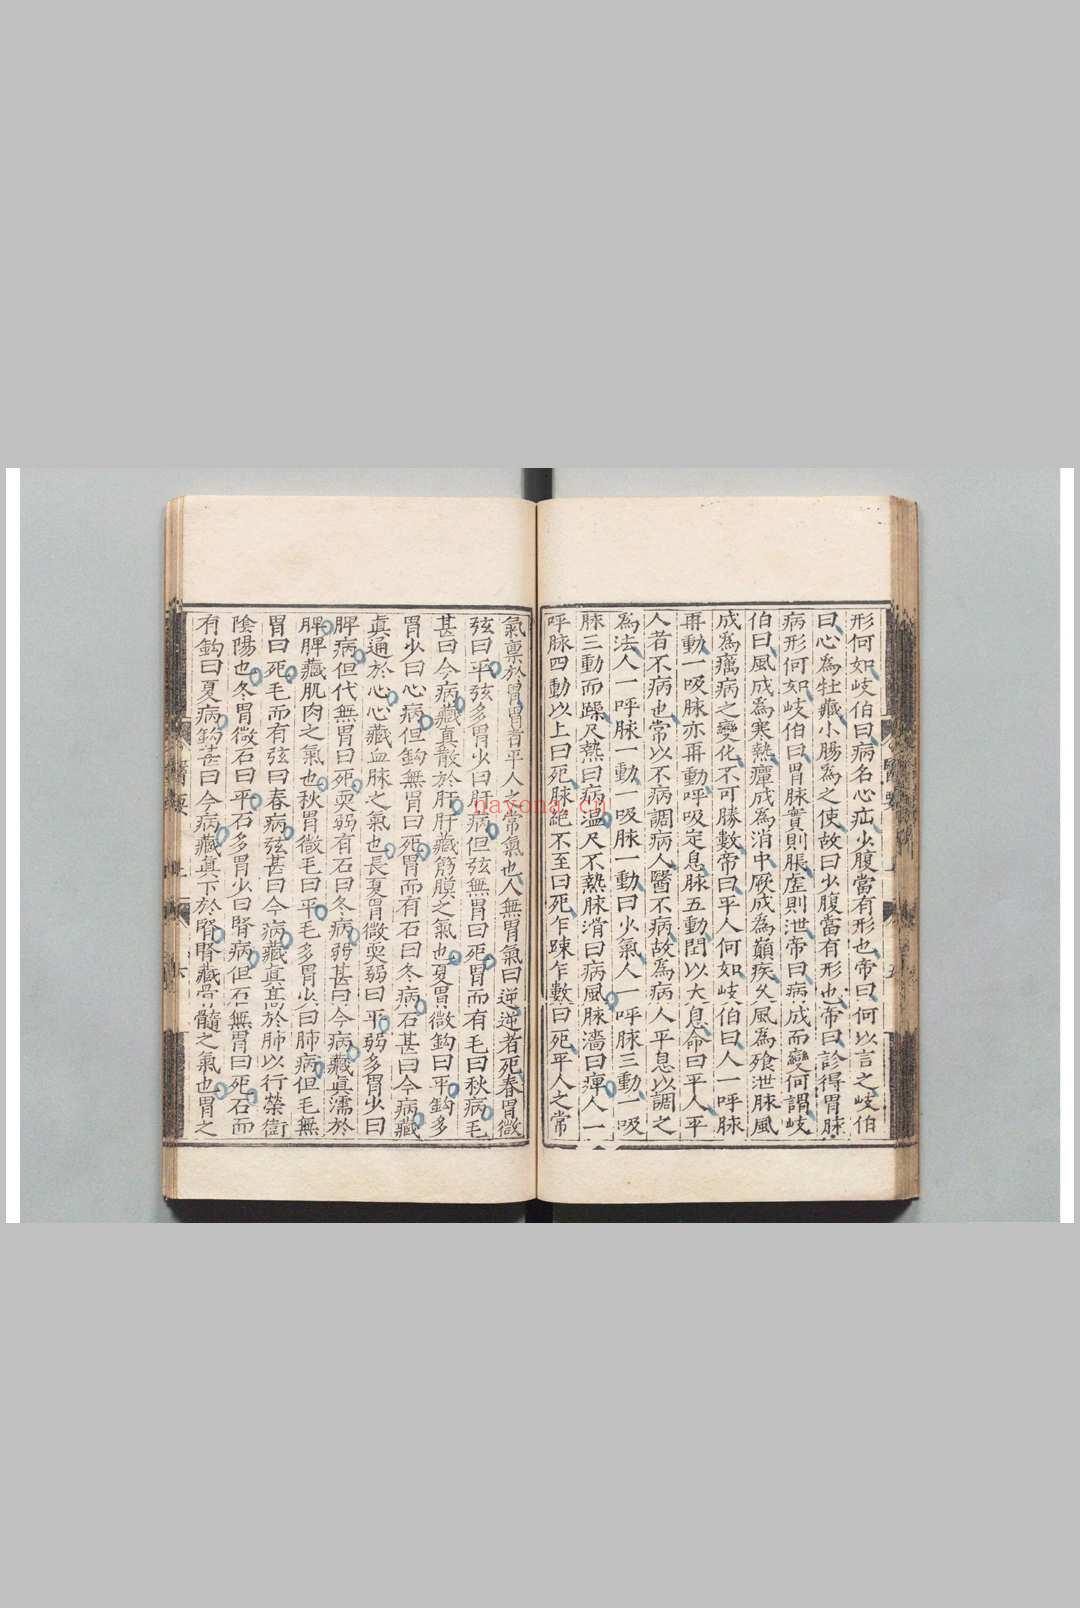 形何如岐伯曰病名心疝少腹當有形也帝曰何以言之岐伯
曰心為牡藏小腸為之使故曰少腹當有形也帝曰診得胃脉
病形何如岐伯曰胃脉實則脹虛則泄帝曰病成而變何謂岐
伯曰風成為寒熱癉成為消中厥成為巔疾久風為飱泄脉風
成為癘病之變化不可勝數帝曰平人何如岐伯曰人一呼脉
再動一吸脉亦再動呼吸定息脉五動閏以大息命曰平人平
人者不病也常以不病調病人醫不病故為病人平息以調之
為法人一呼脉一動一吸脉一動曰少氣人一呼脉三動一吸
脉三動而躁尺熱曰病温尺不熱脉滑曰病風脉濇曰痺人一
呼脉四動以上曰死脉絶不至曰死乍踈乍數曰死平人之常
氣禀於胃胃者平人之常氣也人無胃氣曰逆逆者死春胃微
弦曰平弦多胃少曰肝病但弦無胃曰死胃而有毛曰秋病毛
甚曰今病藏真散於肝肝藏筋膜之氣也夏胃微鈎曰平鈎多
胃少曰心病但鈎無胃曰死胃而有石曰冬病石甚曰今病藏
真通於心心藏血脉之氣也長夏胃微耎弱曰平弱多胃少曰
脾病但代無胃曰死耎弱有石曰冬病弱甚曰今病藏真濡於
脾脾藏肌肉之氣也秋胃微毛曰平毛多胃少曰肺病但毛無
胃曰死毛而有弦曰春病弦甚曰今病藏真髙於肺以行榮衛
隂陽也冬胃微石曰平石多胃少曰腎病但石無胃曰死石而
有鈎曰夏病鈎甚曰今病藏真下於腎腎藏骨髓之氣也胃之
醫要
nayona.cn